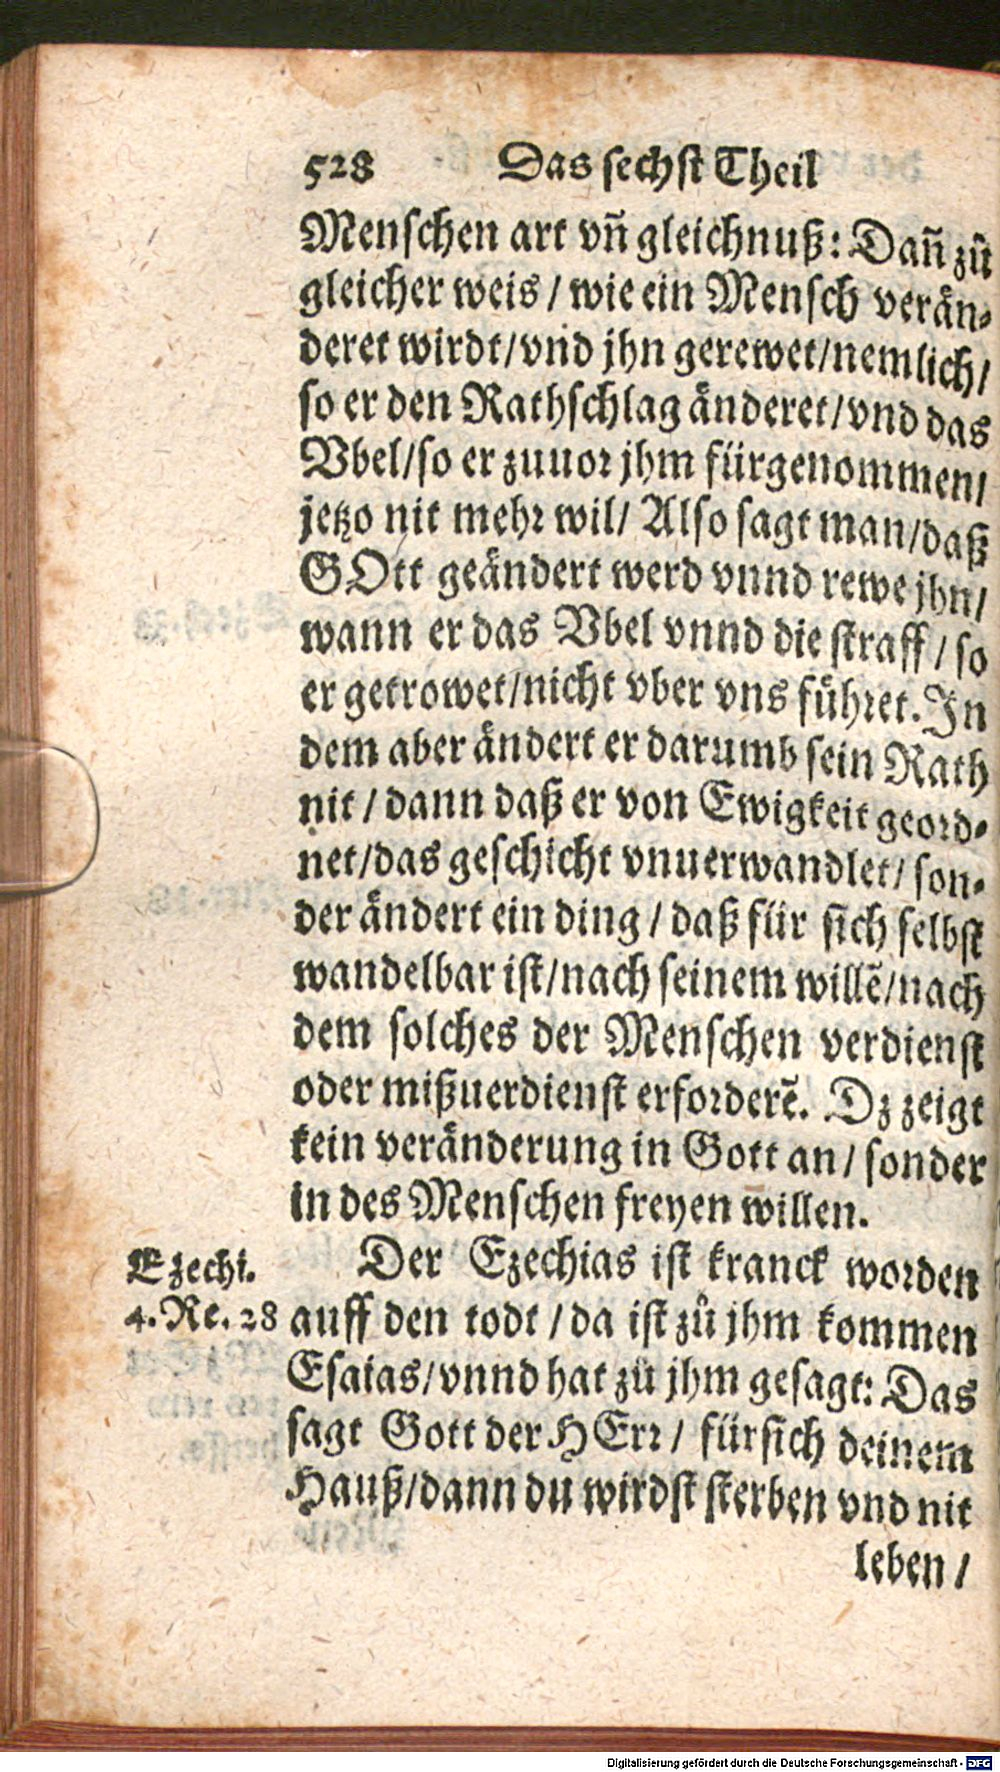 528 Das sechst Theil
Menschen art vñ gleichnuß: Dañ zů
gleicher weis / wie ein Mensch verän-
deret wirdt/vnd jhn gerewet/nemlich/
so er den Rathschlag änderet/vnd das
Vbel/so er zuuor jhm fürgenommen/
jetzo nit mehr wil/ Also sagt man/daß
GOtt geändert werd vnnd rewe jhn/
wann er das Vbel vnnd die straff / so
er getrowet/nicht vber vns führet. In
dem aber ändert er darumb sein Rath
nit / dann daß er von Ewigkeit geord-
net/das geschicht vnuerwandlet/ son-
der ändert ein ding / daß für sich selbst
wandelbar ist/nach seinem willẽ/nach
dem solches der Menschen verdienst
oder mißuerdienst erforderẽ. Dz zeigt
kein veränderung in Gott an / sonder
in des Menschen freyen willen.
Der Ezechias ist kranck worden
Ezechi.
4. Re. 28
auff den todt / da ist zů jhm kommen
Esaias/vnnd hat zů jhm gesagt: Das
sagt Gott der HErr / fürsich deinem
Hauß/dann du wirdst sterben vnd nit
leben /
Digitalisierung gefördert durch die Deutsche Forschungsgemeinschaft - DFG